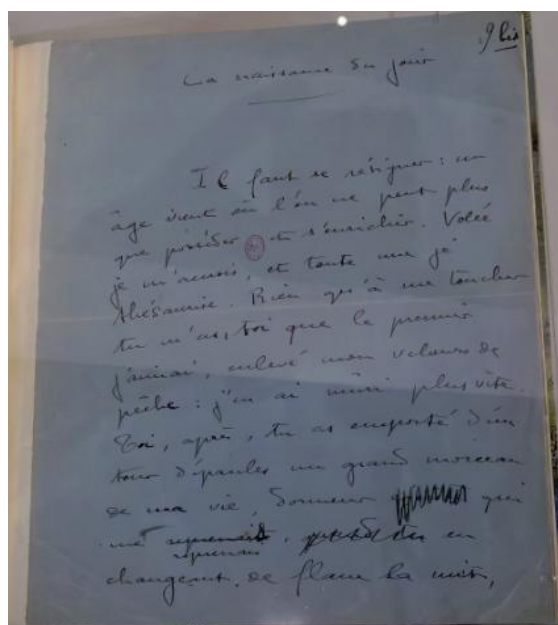 9 bis
La naissance du jour
Il faut se résigner : un
âge vient où l'on ne peut plus
que posséder et s'enrichir. Volée
je m'accrois, et toute nue je
thésaurise. Rien qu'à me toucher
tu m'as, toi que le premier
j'aimai, enlevé mon velours de
pêche : j'en ai mûri plus vite.
Toi, après, tu as emporté d'un
tour d'épaules un grand morceau
de ma vie, dormeur qui
me
reprenais
changeant de flanc la nuit,